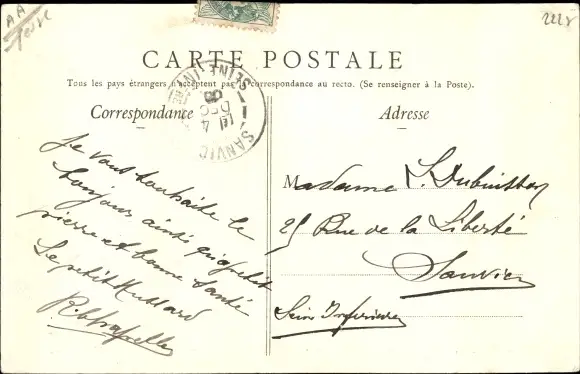 AA
2228
CARTE POSTALE
Tous les pays étrangers n'acceptent pas la correspondance au recto. (Se renseigner à la Poste).
Correspondance
Adresse
SANVIC
SEINE INF
4
DEC
Je vous souhaite le
bonjour ainsi qu'au petit
pierre et bonne santé
Le petit Hussard
R.
Madame L. Dubuisson
25 Rue de la Liberté
Sanvic
Seine Inférieure